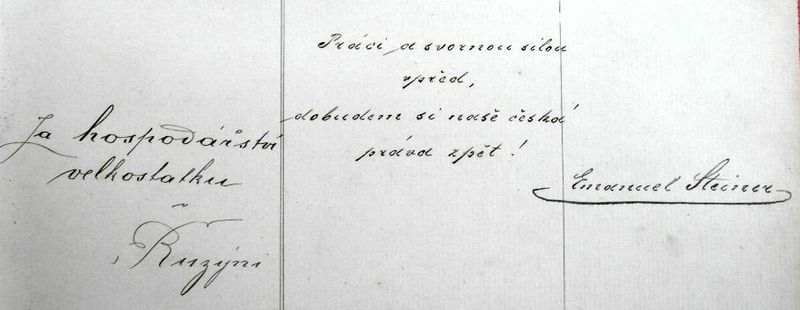 Za hospodářství
velkostatku
v
Ruzýni
Prácí a svornou silou
vpřed,
dobudem si naše česká
práva zpět!
Emanuel Steiner